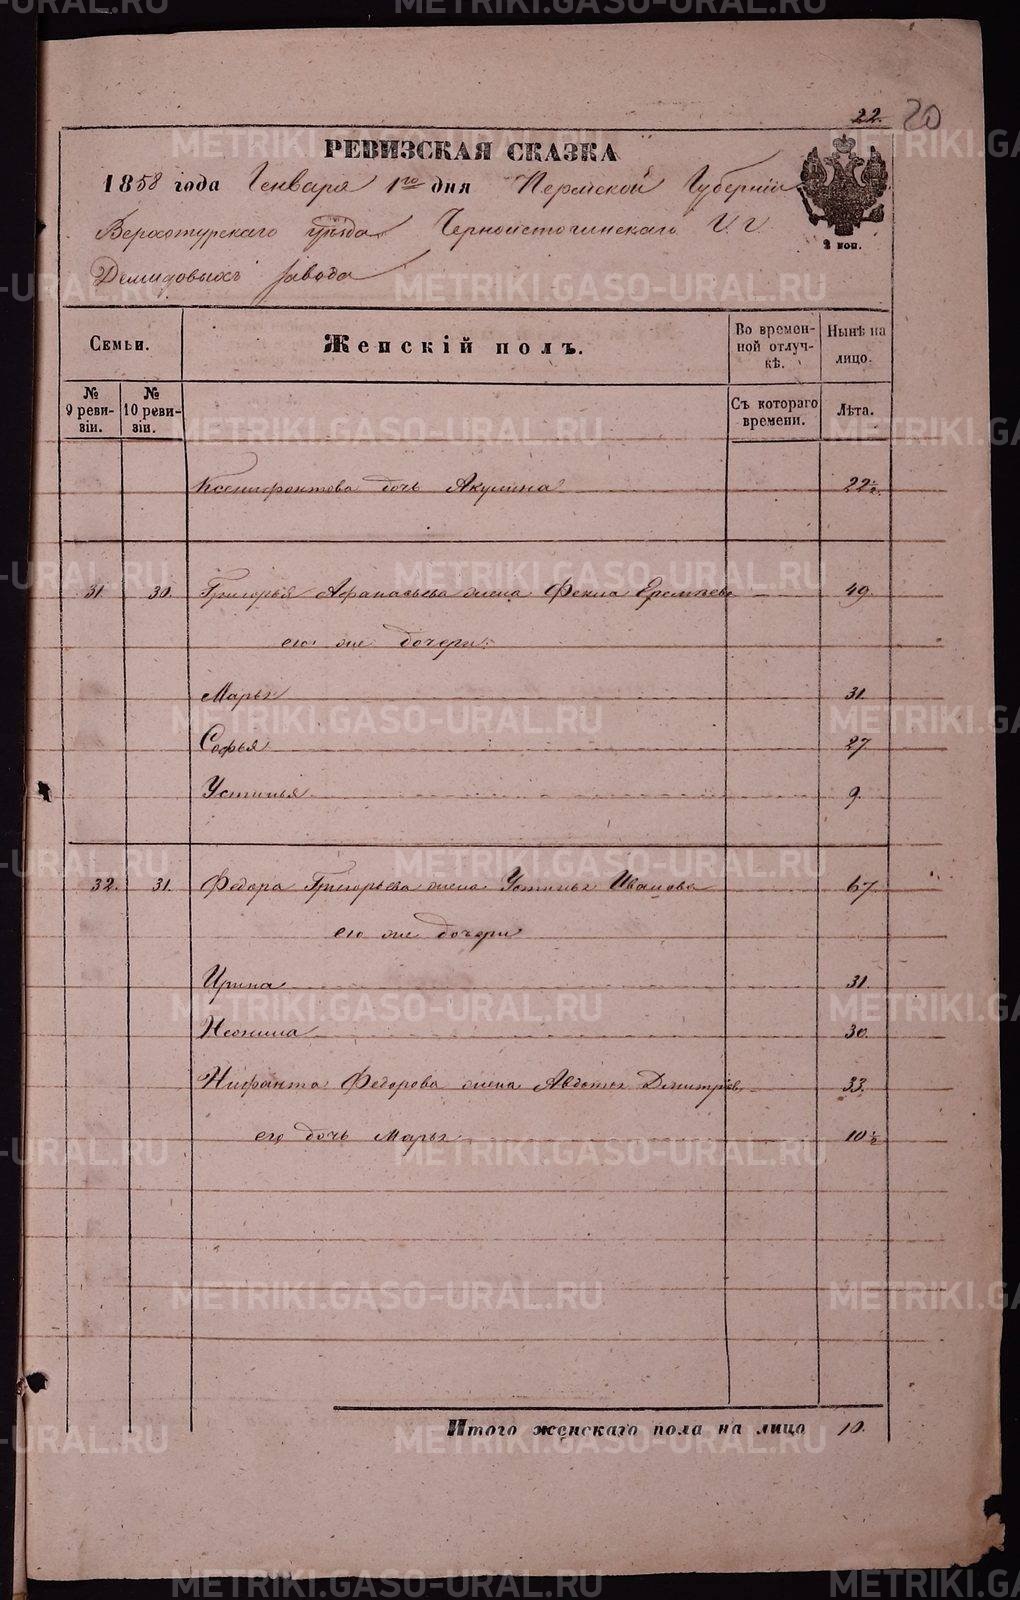 22. 20
РЕВИЗСКАЯ СКАЗКА
1858 года Генваря 1го дня Пермской Губерніи
Верхотурскаго уѣзда Черноисточинскаго Г.г.
Демидовыхъ завода
2 коп.
Семьи.
Женскій полъ.
Во временной отлучкѣ.
Нынѣ на лицо.
№ 9 ревизіи.
№ 10 ревизіи.
Съ котораго времени.
Лѣта.
Ксенофонтова дочь Акулина 22½.
31 30. Григорья Афанасьева жена Фекла Еремѣева 49.
его же дочери:
Марья 31.
Софья 27
Устинья 9.
32. 31. Федора Григорьева жена Устинья Иванова 67
его же дочери
Ирина 31.
Неонила 30.
Нифанта Федорова жена Авдотья Дмитріев. 33.
его дочь Марья 10½
Итого женскаго пола на лицо 10.
METRIKI.GASO-URAL.RU